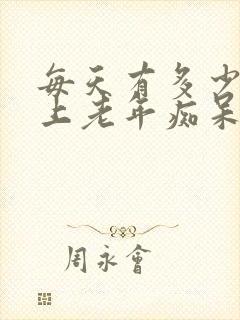 每天有多少
上老年痴呆
周永會